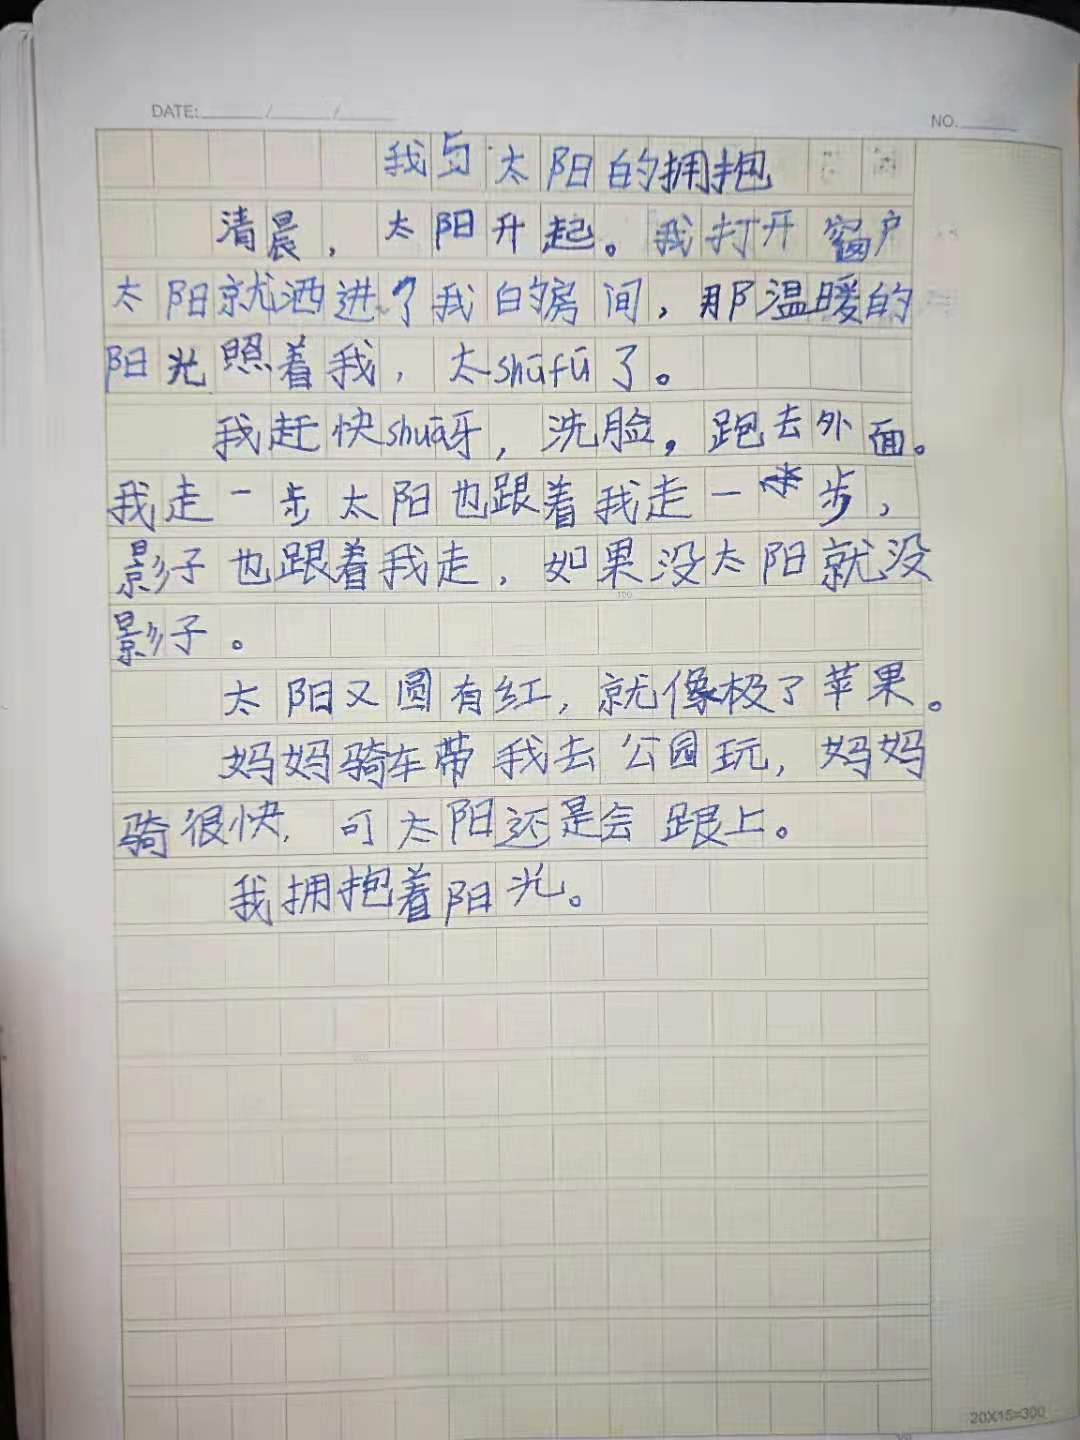 DATE: ____/____/____
NO. ____
我与太阳的拥抱
清晨，太阳升起。我打开窗户
太阳就洒进了我的房间，那温暖的
阳光照着我，太shūfú了。
我赶快shuā牙，洗脸，跑去外面。
我走一步太阳也跟着我走一步，
影子也跟着我走，如果没太阳就没
影子。
太阳又圆有红，就像极了苹果。
妈妈骑车带我去公园玩，妈妈
骑很快，可太阳还是会跟上。
我拥抱着阳光。
20X15=300